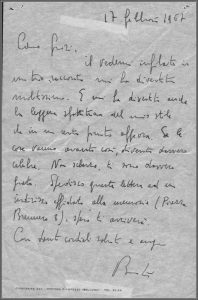 17 febbraio 1967
Caro
il vedermi infilato in
un tuo racconto mi ha divertito
moltissimo. E mi ha divertito anche
la leggera sfottitura del mio stile
che in un certo punto affiora. Se le
cose vanno avanti così, divento davvero
celebre. Non scherzo, ti sono davvero
grato. Spedisco questa lettera ad un
indirizzo affidato alla memoria (Piazza
Brennero 5). Spero ti arriverà.
Con tanti cordiali saluti e auguri